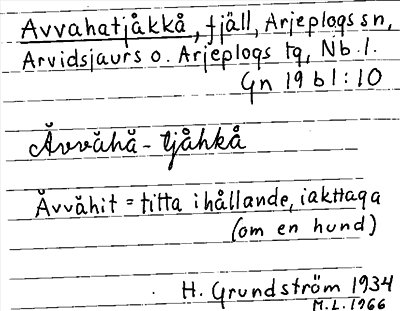 Avvahatjåkkå, fjäll, Arjeplogs sn,
Arvidsjaurs o. Arjeplogs tg, Nb. l.
Gn 19 b1:10
Ăvvăhă - tjåhkå
Ăvvăhit = titta ihållande, iakttaga
(om en hund)
H. Grundström 1934
M.L. 1966